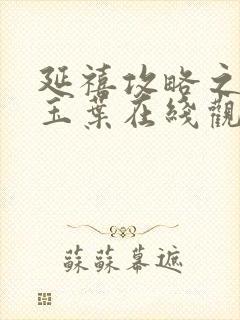 延禧攻略之
玉葉在綫觀
蘇蘇幕遮